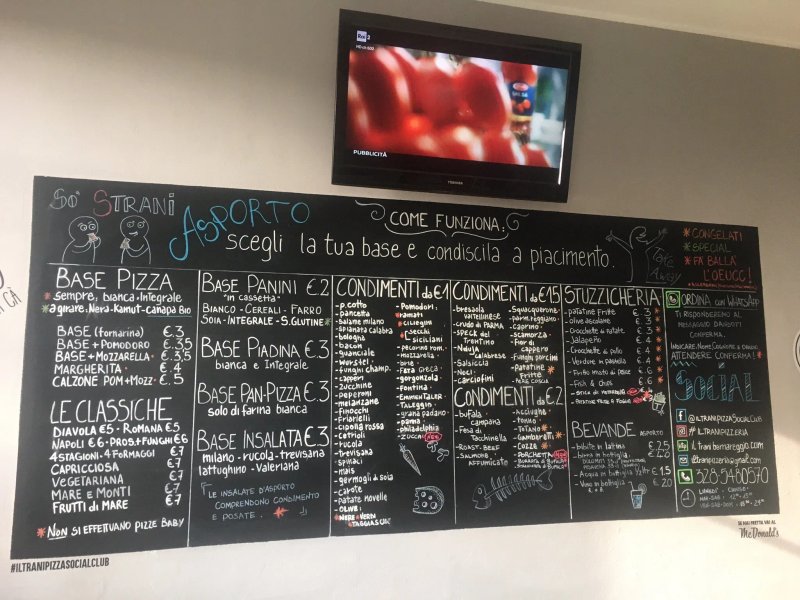 Rai 2
PUBBLICITÀ
TOSHIBA
SO' STRANI
ASPORTO
COME FUNZIONA:
scegli la tua base e condiscila a piacimento.
Take Away
* CONGELATI
* SPECIAL
* FA' BALLÀ L'OEUCC!
BASE PIZZA
* sempre: bianca • Integrale
* a girare: Nera • Kamut • canapa BIO
BASE (fornarina) €.3
BASE + POMODORO €.3,5
BASE + MOZZARELLA €.3,5
MARGHERITA €.4
CALZONE POM + MOZZ €.5
LE CLASSICHE
DIAVOLA €5 - ROMANA €5
NAPOLI €6 - PROS. + FUNGHI €6
4 STAGIONI - 4 FORMAGGI €7
CAPRICCIOSA €7
VEGETARIANA €7
MARE E MONTI €7
FRUTTI di MARE €7
* NON SI EFFETTUANO PIZZE BABY
BASE PANINI €2
"in cassetta"
BIANCO - CEREALI - FARRO
SOIA - INTEGRALE - S. GLUTINE
BASE PIADINA €3
bianca e Integrale
BASE PAN-PIZZA €3
solo di farina bianca
BASE INSALATA €3
milano - rucola - trevisana
lattughino - Valeriana
LE INSALATE D'ASPORTO
COMPRENDONO CONDIMENTO
E POSATE.
CONDIMENTI da €1
- p. cotto
- pancetta
- salame milano
- spianata calabra
- bologna
- bacon
- guanciale
- wurstel
- funghi champ.
- capperi
- zucchine
- peperoni
- melanzane
- Finocchi
- Friarielli
- cipolla rossa
- cetrioli
- rucola
- trevisana
- spinaci
- mais
- germogli di soia
- carote
- patate novelle
- OLIVE:
* NERE * VERDI
* TAGGIASCHE
- Pomodori:
* ramati
* ciliegini
* secchi
* siciliani
- pecorino rom.
- mozzarella
- brie
- Feta greca
- gorgonzola
- Fontina
- EMMENTALER
- Taleggio
- grana padano
- panna
- philadelphia
- ZUCCA NEW
CONDIMENTI da €1,5
- bresaola valtellinese
- crudo di PARMA
- SPECK del TRENTINO
- Nduja calabrese
- Salsiccia
- Noci
- carciofini
- Squacquerone
- parm. reggiano
- Caprino
- scamorza
- Fior di cappero
- Funghi porcini
- PATATINE Fritte
CONDIMENTI da €2
- bufala campana
- Fesa di Tacchinella
- ROAST BEEF
- SALMONE AFFUMICATO
- Acciughe
- Tonno
- TOTANO
- Gamberetti
- COZZE
- PORCHETTA
STUZZICHERIA
- PATATINE Fritte €.3
- olive ascolane €.3
- Crocchette di patate €.3
- Jalapeño €.4
- Crocchette di pollo €.4
- Verdure in pastella €.4
- Fritto misto di pesce €.6
- Fish & Chips €.6
BEVANDE ASPORTO
- bibite in lattina €2
- birra in bottiglia
- Acqua in bottiglia 1/2 LTR €.1,5
- Vino in bottiglia
ORDINA con WHATSAPP
TI RISPONDEREMO AL
MESSAGGIO DANDOTI
CONFERMA.
ATTENDERE CONFERMA!
SOCIAL
@ILTRANIPIZZASOCIALCLUB
#ILTRANIPIZZERIA
iltranipizzeria@gmail.com
328•5480570
SE HAI FRETTA VAI AL
McDonald's
#ILTRANIPIZZASOCIALCLUB